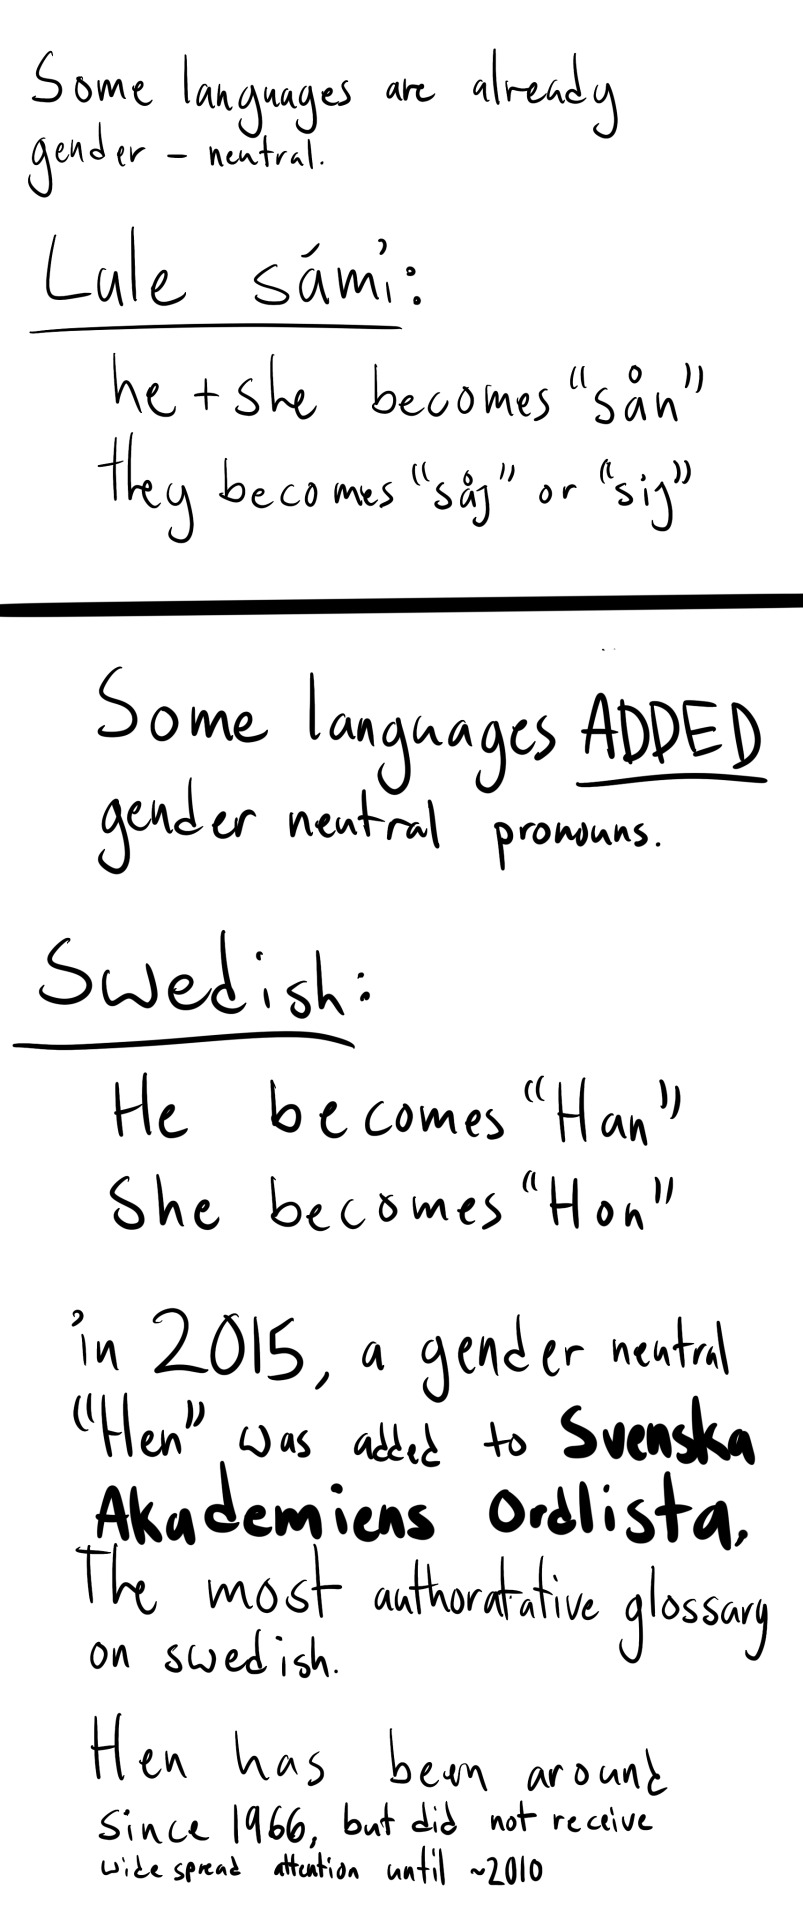 Some languages are already
gender - neutral.
Lule sámi:
he + she becomes "sån"
they becomes "såj" or "sij"
Some languages ADDED
gender neutral pronouns.
Swedish:
He becomes "Han"
She becomes "Hon"
in 2015, a gender neutral
"Hen" was added to Svenska
Akademiens Ordlista.
The most authoratative glossary
on swedish.
Hen has been around
since 1966, but did not receive
wide spread attention until ~2010